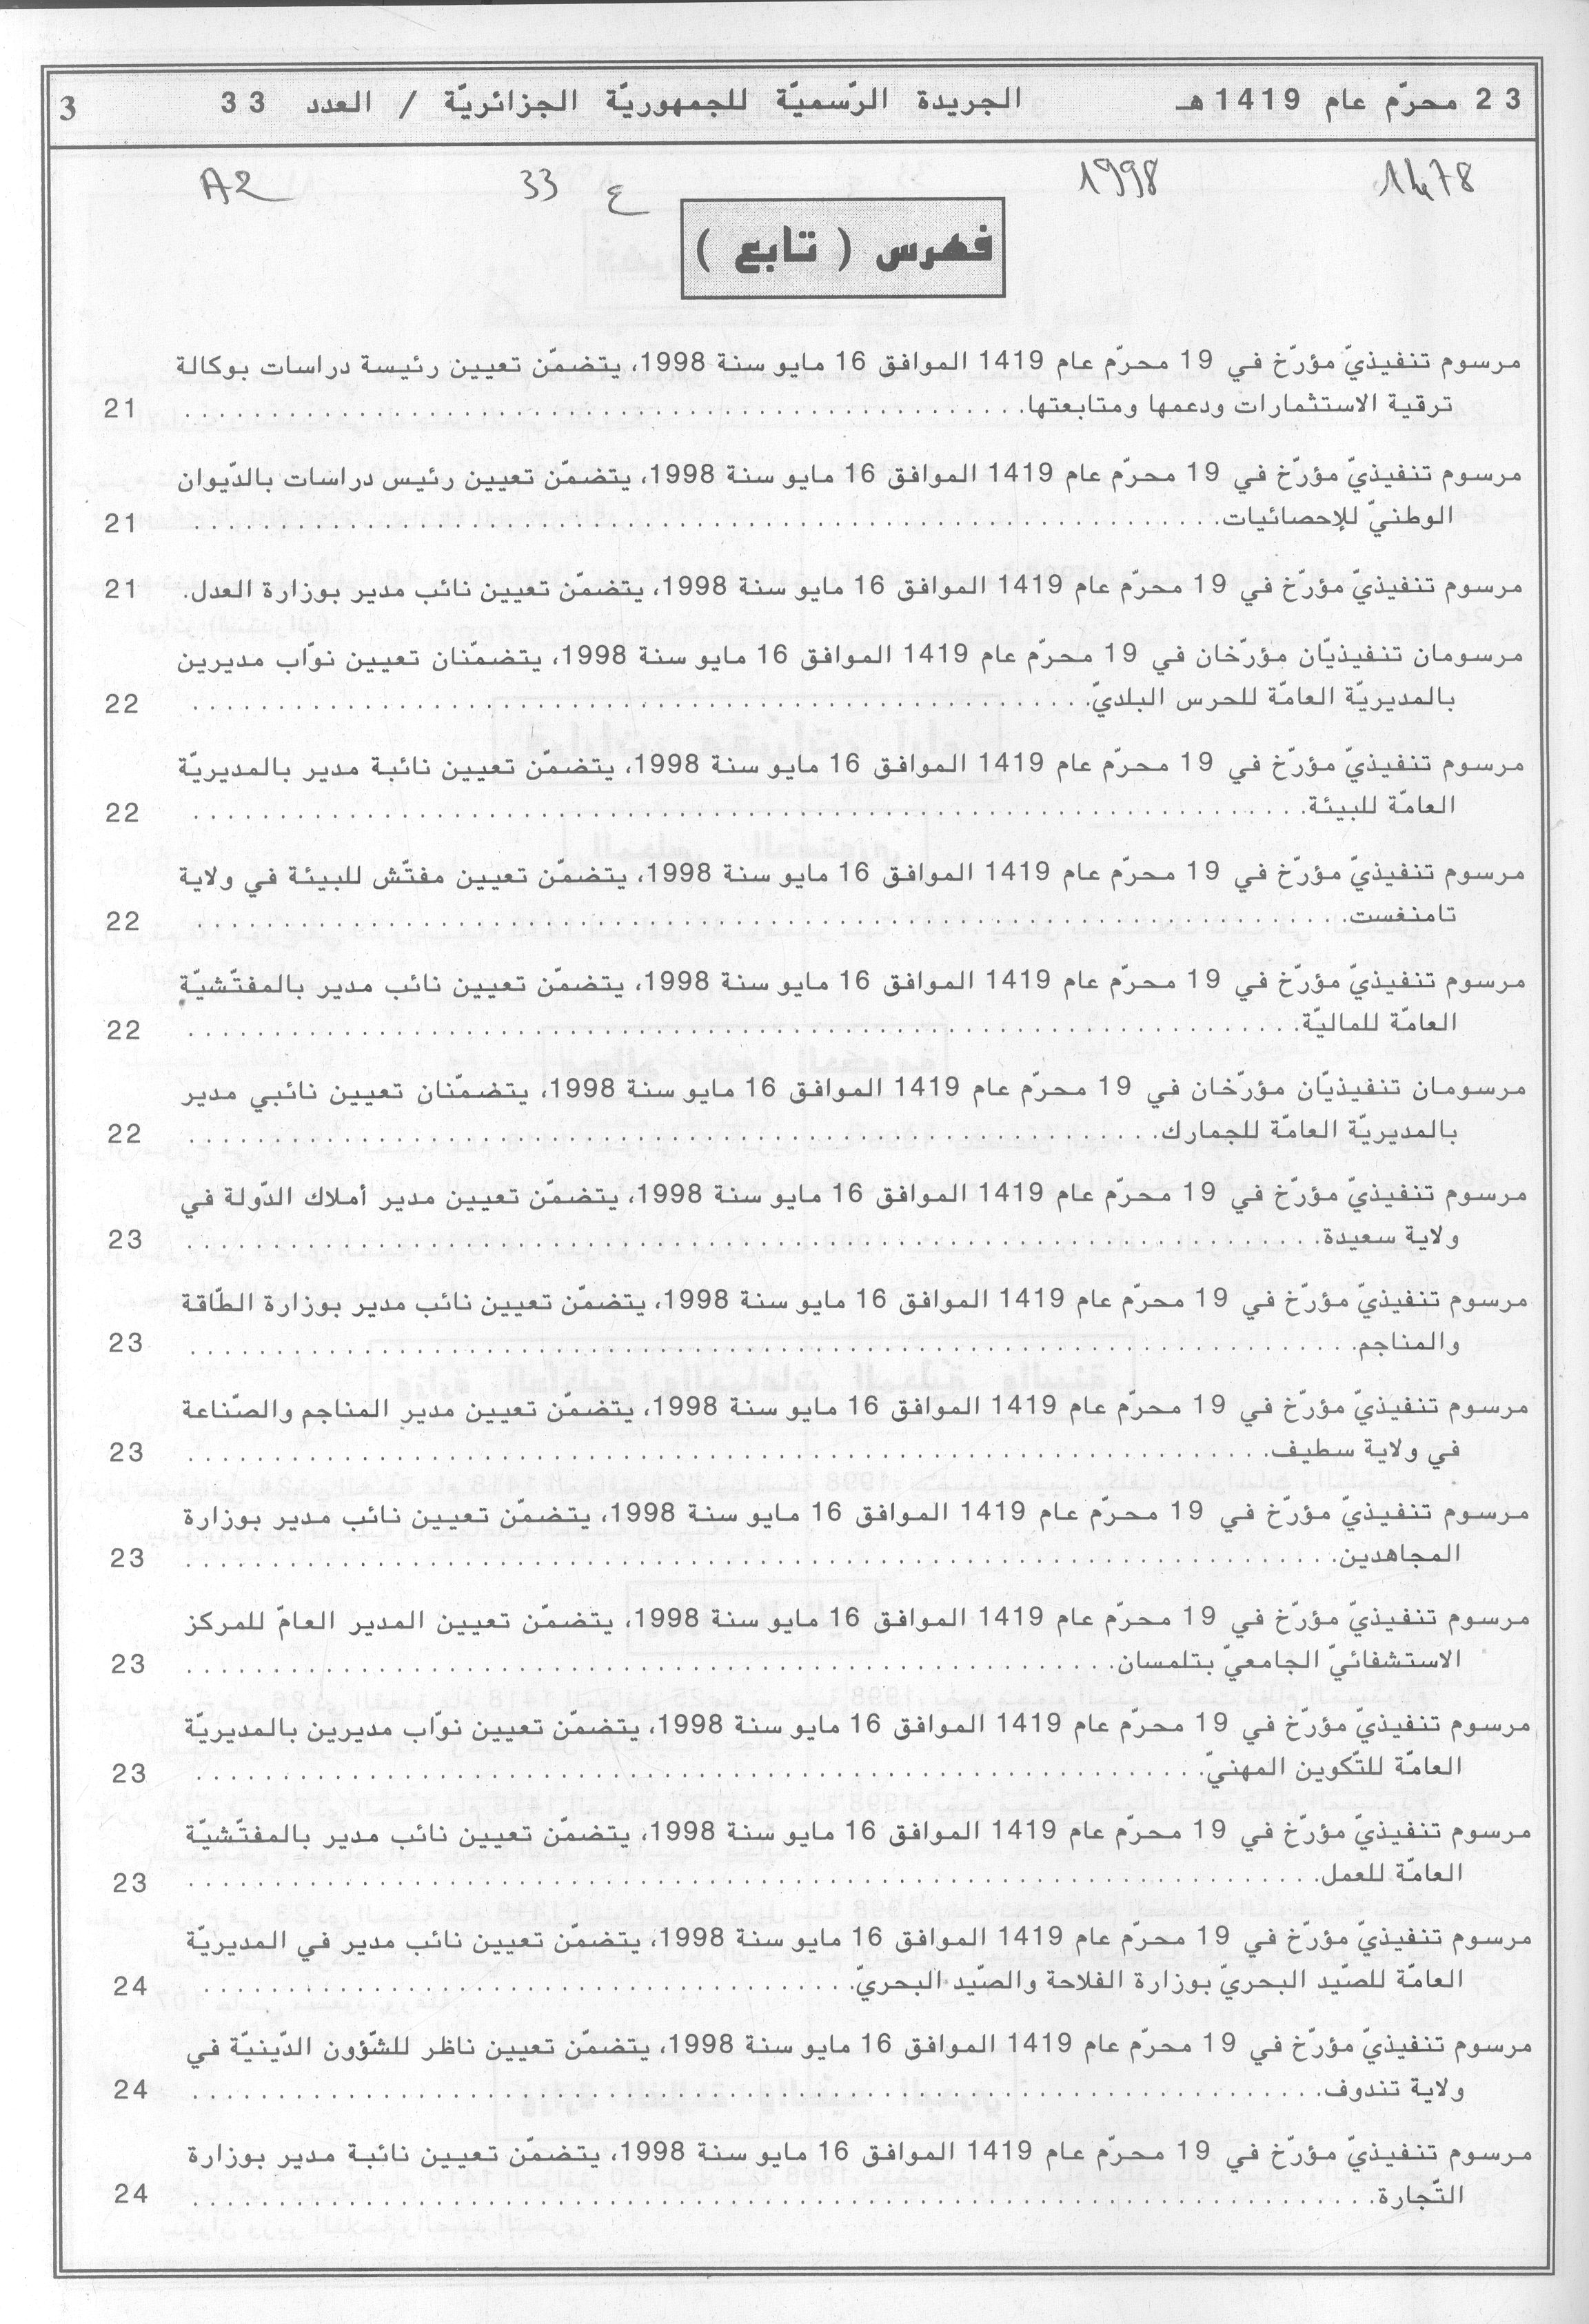 23 محرّم عام 1419 هـ الجريدة الرّسميّة للجمهوريّة الجزائريّة / العدد 33 3
1478 1998 ع 33 A2
فهرس ( تابع )
مرسوم تنفيذيّ مؤرّخ في 19 محرّم عام 1419 الموافق 16 مايو سنة 1998، يتضمّن تعيين رئيسة دراسات بوكالة
ترقية الاستثمارات ودعمها ومتابعتها. 21
مرسوم تنفيذيّ مؤرّخ في 19 محرّم عام 1419 الموافق 16 مايو سنة 1998، يتضمّن تعيين رئيس دراسات بالدّيوان
الوطنيّ للإحصائيات. 21
مرسوم تنفيذيّ مؤرّخ في 19 محرّم عام 1419 الموافق 16 مايو سنة 1998، يتضمّن تعيين نائب مدير بوزارة العدل. 21
مرسومان تنفيذيّان مؤرّخان في 19 محرّم عام 1419 الموافق 16 مايو سنة 1998، يتضمّنان تعيين نوّاب مديرين
بالمديريّة العامّة للحرس البلديّ. 22
مرسوم تنفيذيّ مؤرّخ في 19 محرّم عام 1419 الموافق 16 مايو سنة 1998، يتضمّن تعيين نائبة مدير بالمديريّة
العامّة للبيئة. 22
مرسوم تنفيذيّ مؤرّخ في 19 محرّم عام 1419 الموافق 16 مايو سنة 1998، يتضمّن تعيين مفتّش للبيئة في ولاية
تامنغست. 22
مرسوم تنفيذيّ مؤرّخ في 19 محرّم عام 1419 الموافق 16 مايو سنة 1998، يتضمّن تعيين نائب مدير بالمفتّشيّة
العامّة للماليّة. 22
مرسومان تنفيذيّان مؤرّخان في 19 محرّم عام 1419 الموافق 16 مايو سنة 1998، يتضمّنان تعيين نائبي مدير
بالمديريّة العامّة للجمارك. 22
مرسوم تنفيذيّ مؤرّخ في 19 محرّم عام 1419 الموافق 16 مايو سنة 1998، يتضمّن تعيين مدير أملاك الدّولة في
ولاية سعيدة. 23
مرسوم تنفيذيّ مؤرّخ في 19 محرّم عام 1419 الموافق 16 مايو سنة 1998، يتضمّن تعيين نائب مدير بوزارة الطّاقة
والمناجم. 23
مرسوم تنفيذيّ مؤرّخ في 19 محرّم عام 1419 الموافق 16 مايو سنة 1998، يتضمّن تعيين مدير المناجم والصّناعة
في ولاية سطيف. 23
مرسوم تنفيذيّ مؤرّخ في 19 محرّم عام 1419 الموافق 16 مايو سنة 1998، يتضمّن تعيين نائب مدير بوزارة
المجاهدين. 23
مرسوم تنفيذيّ مؤرّخ في 19 محرّم عام 1419 الموافق 16 مايو سنة 1998، يتضمّن تعيين المدير العامّ للمركز
الاستشفائيّ الجامعيّ بتلمسان. 23
مرسوم تنفيذيّ مؤرّخ في 19 محرّم عام 1419 الموافق 16 مايو سنة 1998، يتضمّن تعيين نوّاب مديرين بالمديريّة
العامّة للتّكوين المهنيّ. 23
مرسوم تنفيذيّ مؤرّخ في 19 محرّم عام 1419 الموافق 16 مايو سنة 1998، يتضمّن تعيين نائب مدير بالمفتّشيّة
العامّة للعمل. 23
مرسوم تنفيذيّ مؤرّخ في 19 محرّم عام 1419 الموافق 16 مايو سنة 1998، يتضمّن تعيين نائب مدير في المديريّة
العامّة للصّيد البحريّ بوزارة الفلاحة والصّيد البحريّ. 24
مرسوم تنفيذيّ مؤرّخ في 19 محرّم عام 1419 الموافق 16 مايو سنة 1998، يتضمّن تعيين ناظر للشّؤون الدّينيّة في
ولاية تندوف. 24
مرسوم تنفيذيّ مؤرّخ في 19 محرّم عام 1419 الموافق 16 مايو سنة 1998، يتضمّن تعيين نائبة مدير بوزارة
التّجارة. 24